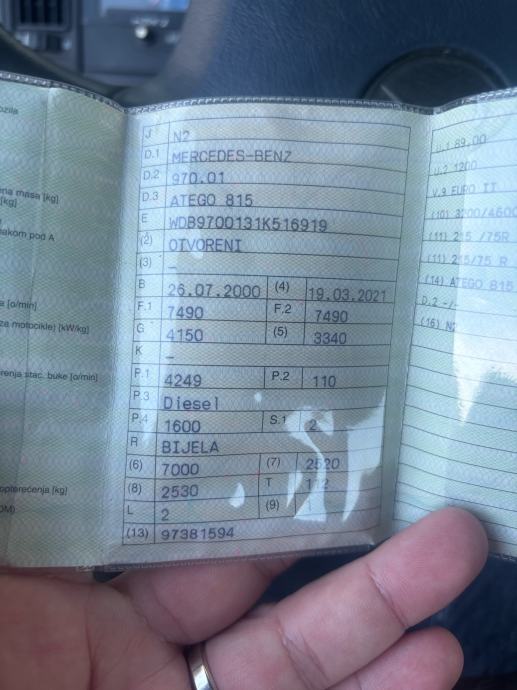 ozila
ena masa [kg]
[kg]
nakom pod A
a [o/min]
za motocikle) [kW/kg]
renja stac. buke [o/min]
opterećenja [kg]
OM)
J N2
D.1 MERCEDES-BENZ
D.2 970.01
D.3 ATEGO 815
E WDB9700131K516919
(2) OTVORENI
(3) –
B 26.07.2000 (4) 19.03.2021
F.1 7490 F.2 7490
G 4150 (5) 3340
K –
P.1 4249 P.2 110
P.3 Diesel
P.4 1600 S.1 2
R BIJELA
(6) 7000 (7) 2520
(8) 2530 T 112
L 2 (9)
(13) 97381594
U.1 89.00
U.2 1200
V.9 EURO II
(10) 3200/4600
(11) 215 /75R
(11) 215/75 R
(14) ATEGO 815
D.2 -/-
(16) N2